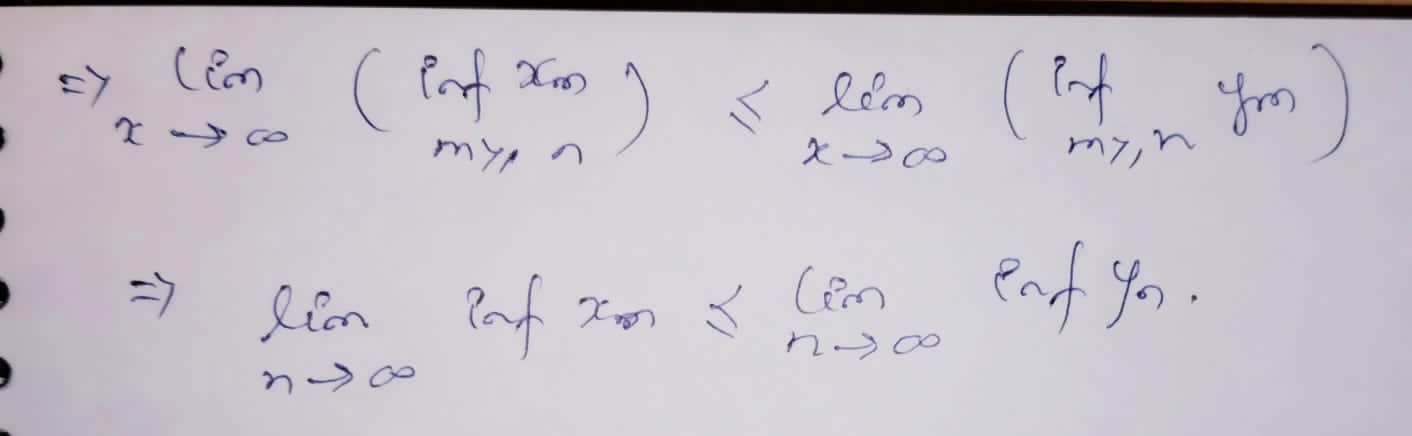 ⇒ lim x→∞ ( inf m≥n xm ) ≤ lim x→∞ ( inf m≥n ym )
⇒ lim n→∞ inf xm ≤ lim n→∞ inf yn.